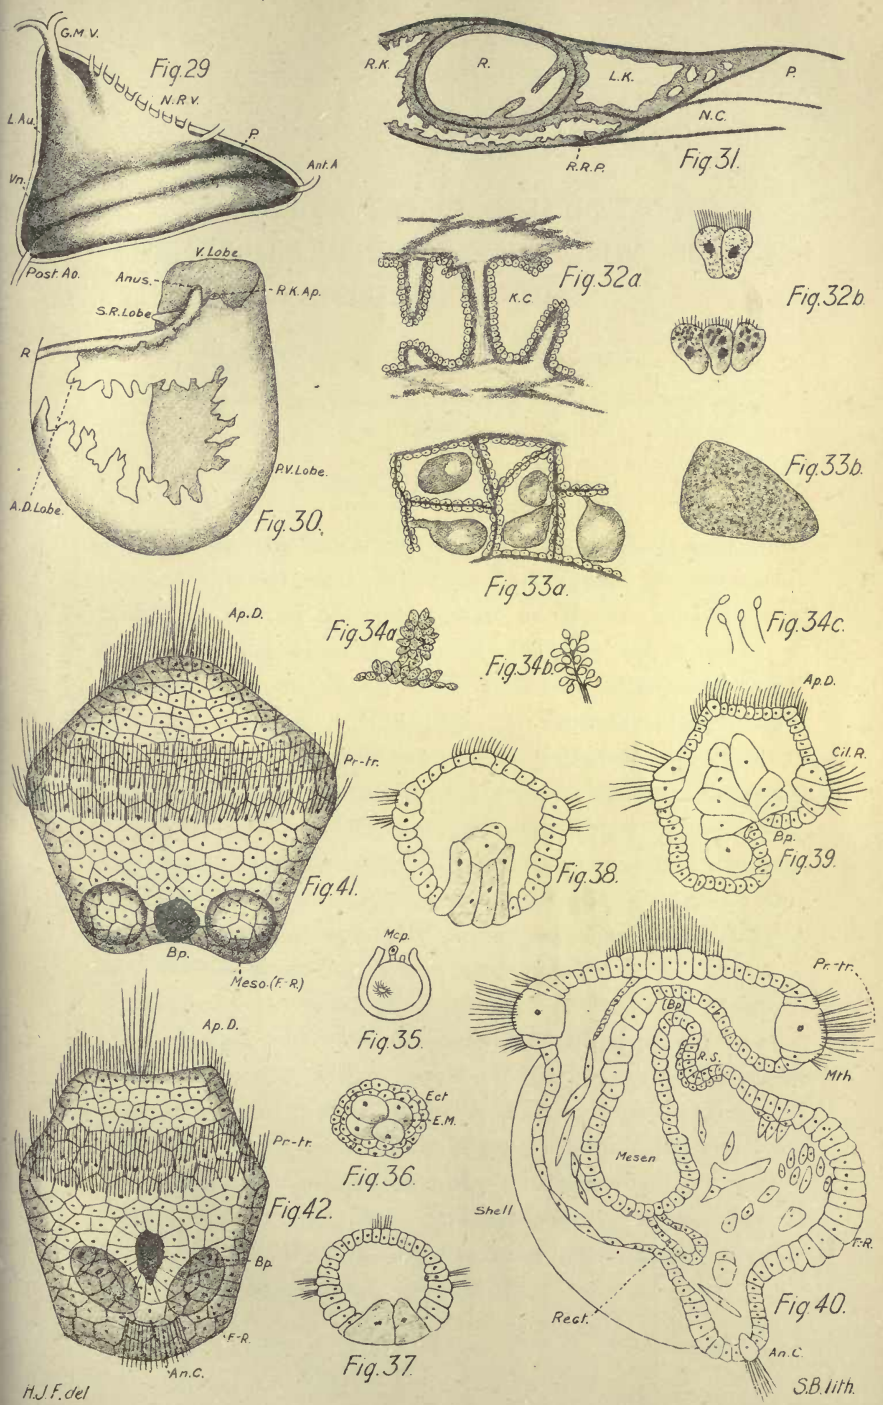 G.M.V.
Fig.29
N.R.V.
L.Au.
P.
Ant.A
Vn.
Post.Ao.
R.K.
R.
L.K.
P.
N.C.
R.R.P.
Fig.31.
V.Lobe.
Anus.
R.K.Ap.
S.R.Lobe.
R
P.V.Lobe.
A.D.Lobe.
Fig.30.
K.C.
Fig.32a.
Fig.32b.
Fig.33a.
Fig.33b.
Fig.34a.
Fig.34b.
Fig.34c.
Ap.D.
Pr-tr.
Fig.41.
Bp.
Meso.(F.-R.)
Fig.38.
Ap.D.
Cil.R.
Bp.
Fig.39.
Mcp.
Fig.35.
Ect
E.M.
Fig.36.
Fig.37.
Ap.D.
Pr-tr.
Fig42.
Bp.
F-R.
An.C.
Pr.-tr.
(Bp)
R.S.
Mth
Mesen
Shell
F.-R.
Rect.
Fig40.
An.C.
H.J.F.del
S.B.lith.